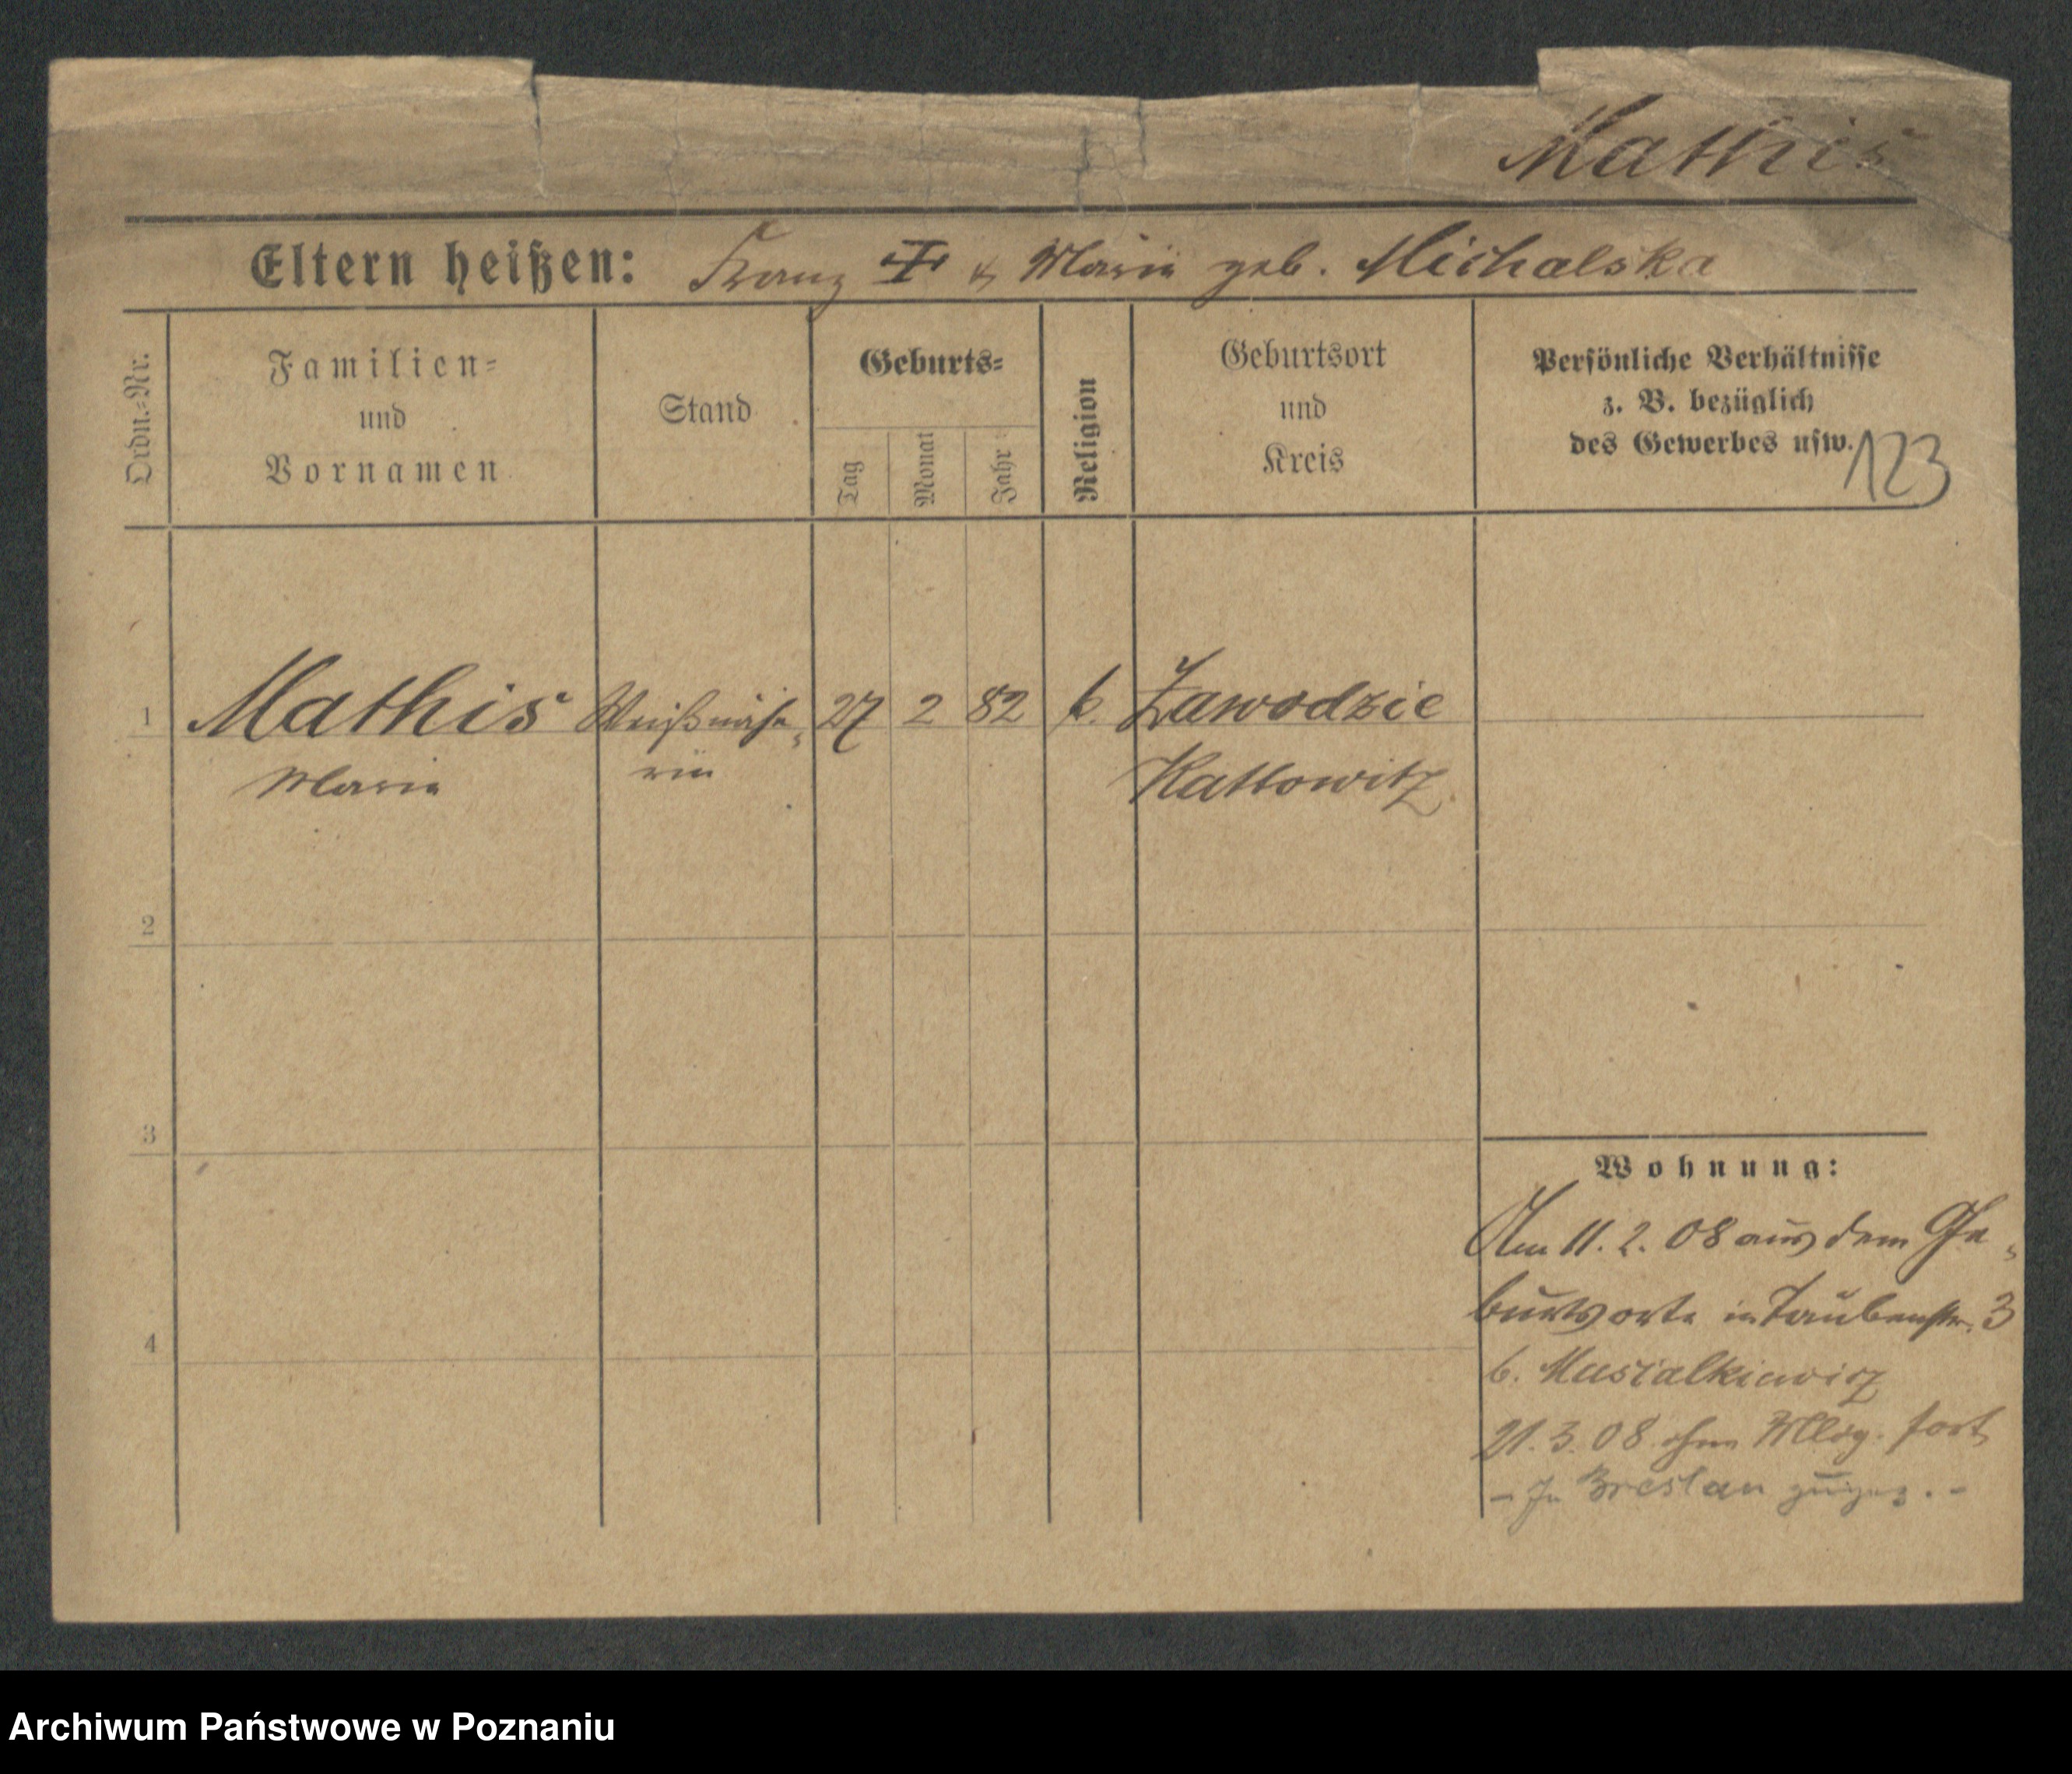 Mathis
Eltern heißen: Franz ✝ & Marie geb. Michalska
Ordn.-Nr.
Familien-
und
Vornamen
Stand
Geburts-
Tag
Monat
Jahr
Religion
Geburtsort
und
Kreis
Persönliche Verhältnisse
z. B. bezüglich
des Gewerbes usw.
123
1 Mathis Weißnähe- 27 2 82 k. Zawodzie
Marie rin Kattowitz
2
3
4
Wohnung:
Am 11. 2. 08 aus dem Ge-
burtsorte in Taubenstr. 3
b. Musialkiewicz
21. 3. 08 ohne Mldg. fort
- In Breslau zugez. -
Archiwum Państwowe w Poznaniu